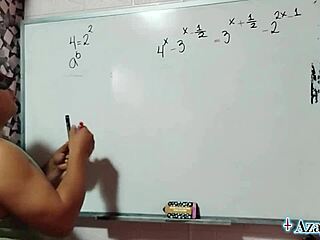 4 = 2²
aᵇ
4^x - 3^(x - 1/2) = 3^(x + 1/2) - 2^(2x - 1)
+ Aza